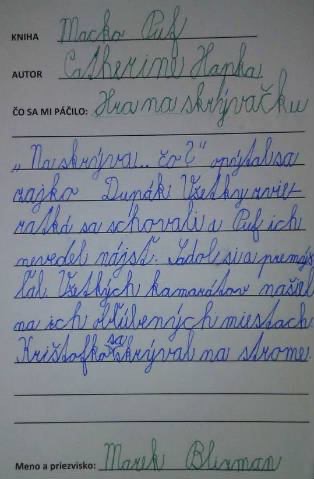 KNIHA Macko Puf
AUTOR Catherine Hapka
ČO SA MI PÁČILO: Hra na skrývačku
„Na skrýva.. čo?“ opýtal sa
rázko Dupák. Všetky zvie-
ratká sa schovali a Puf ich
nevedel nájsť. Sadol si a premýš
ľal. Všetkých kamarátov našiel
na ich obľúbených miestach
Krištofko sa skrýval na strome.
Meno a priezvisko: Marek Blizman